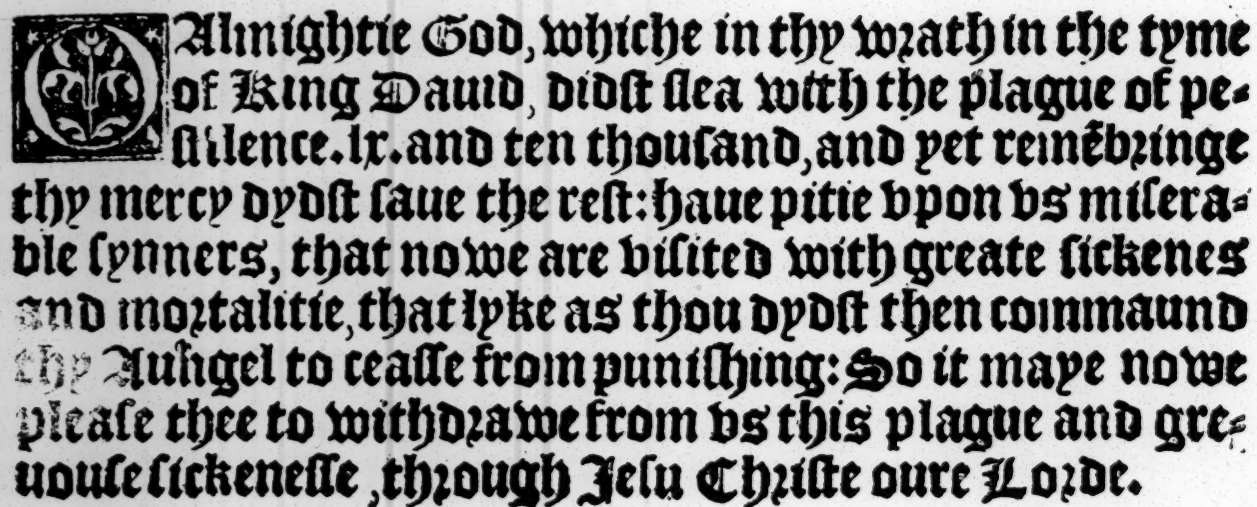 O Almightie God, whiche in thy wrath in the tyme
of King Dauid, didst slea with the plague of pe-
stilence.lx.and ten thousand, and yet remẽbringe
thy mercy dydst saue the rest: haue pitie vpon vs misera-
ble synners, that nowe are visited with greate sickenes
and mortalitie, that lyke as thou dydst then commaund
thy Auñgel to ceasse from punishing: So it maye nowe
please thee to withdrawe from vs this plague and gre-
uouse sickenesse, through Jesu Christe oure Lorde.